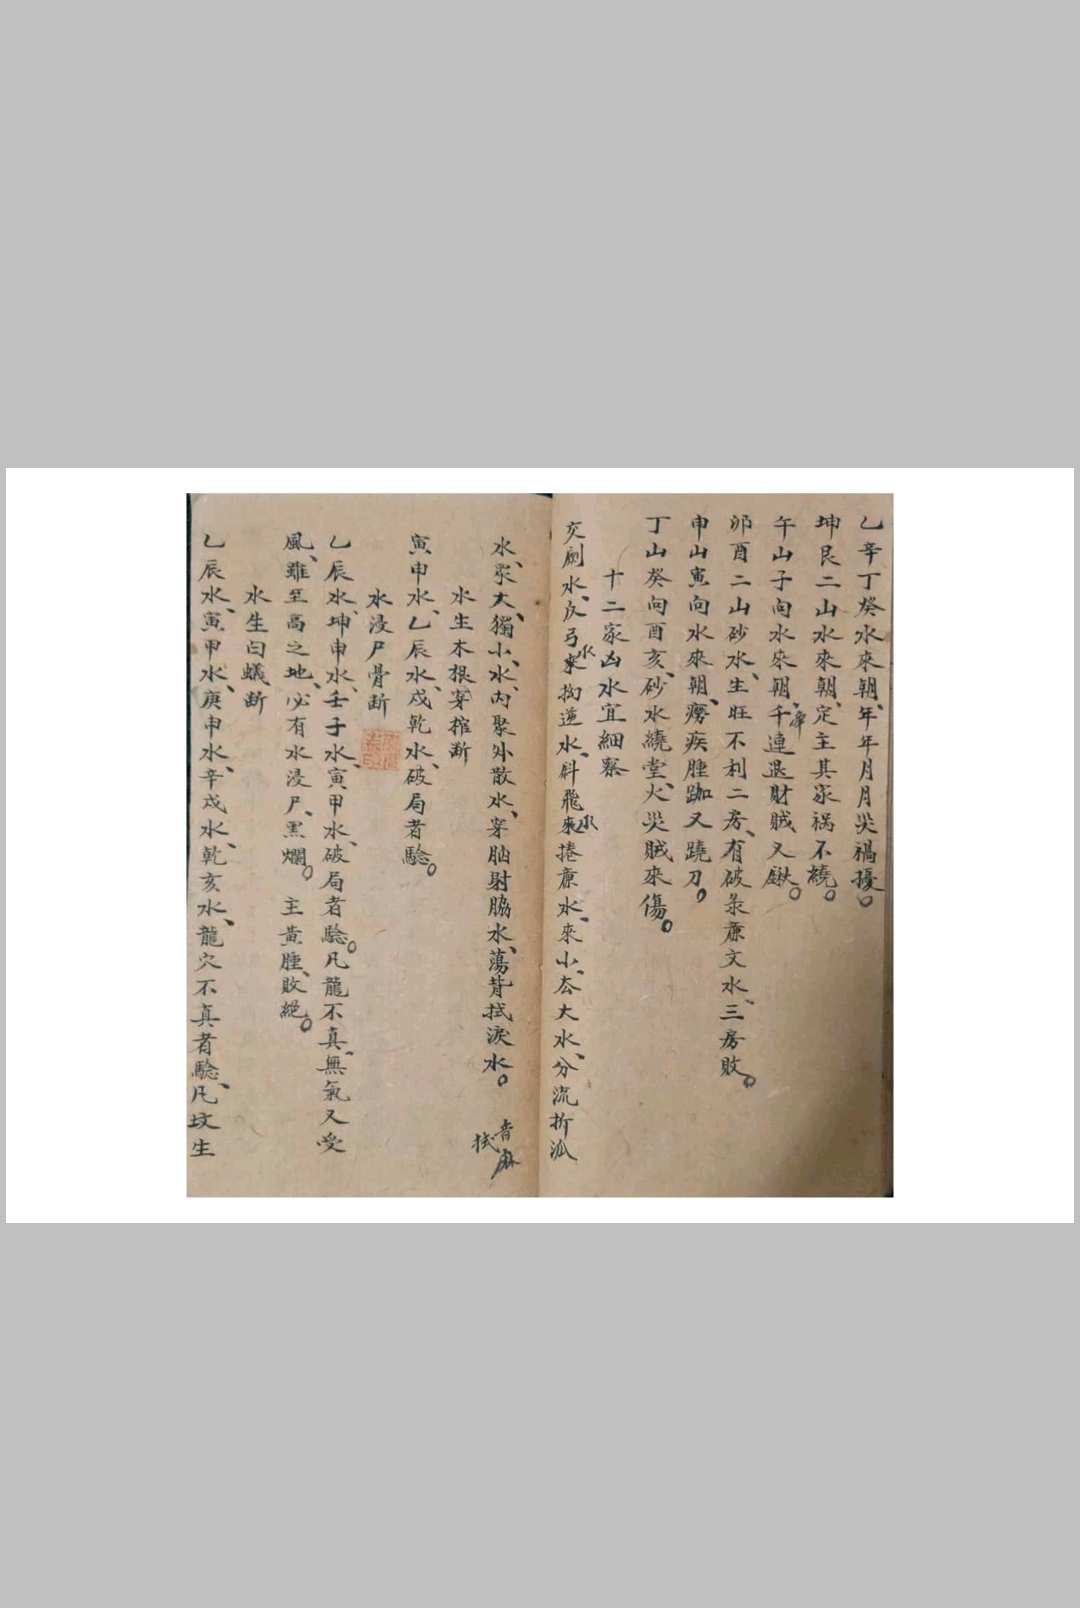 乙辛丁癸水來朝、年年月月災禍擾。
坤艮二山水來朝、定主其家禍不饒。
午山子向水來朝、千連退財賊又
卯酉二山砂水、生旺不利二房、有破彔亷文水、三房敗。
申山寅向水來朝、癆疾腫又蹺刀。
丁山癸向酉亥、砂水繞堂、火災賊來傷。
十二家凶水宜細察
交劍水、反弓水、拘逆水、斜飛水、捲亷水、來小去大水、分流折派
水、眾大獨小水、內聚外散水、穿胸射脇水、蕩背拭淚水。
音麻
拭
水生木根穿棺断
寅申水、乙辰水、戍乾水、破局者騐。
水浸尸骨断
乙辰水、坤申水、壬子水、寅甲水、破局者騐。凡龍不真、無氣又受
風、雖至高之地、必有水浸尸、黑爛。主黃腫、敗絕。
水生白蟻断
乙辰水、寅甲水、庚申水、辛戍水、乾亥水、龍穴不真者騐、凡坟生